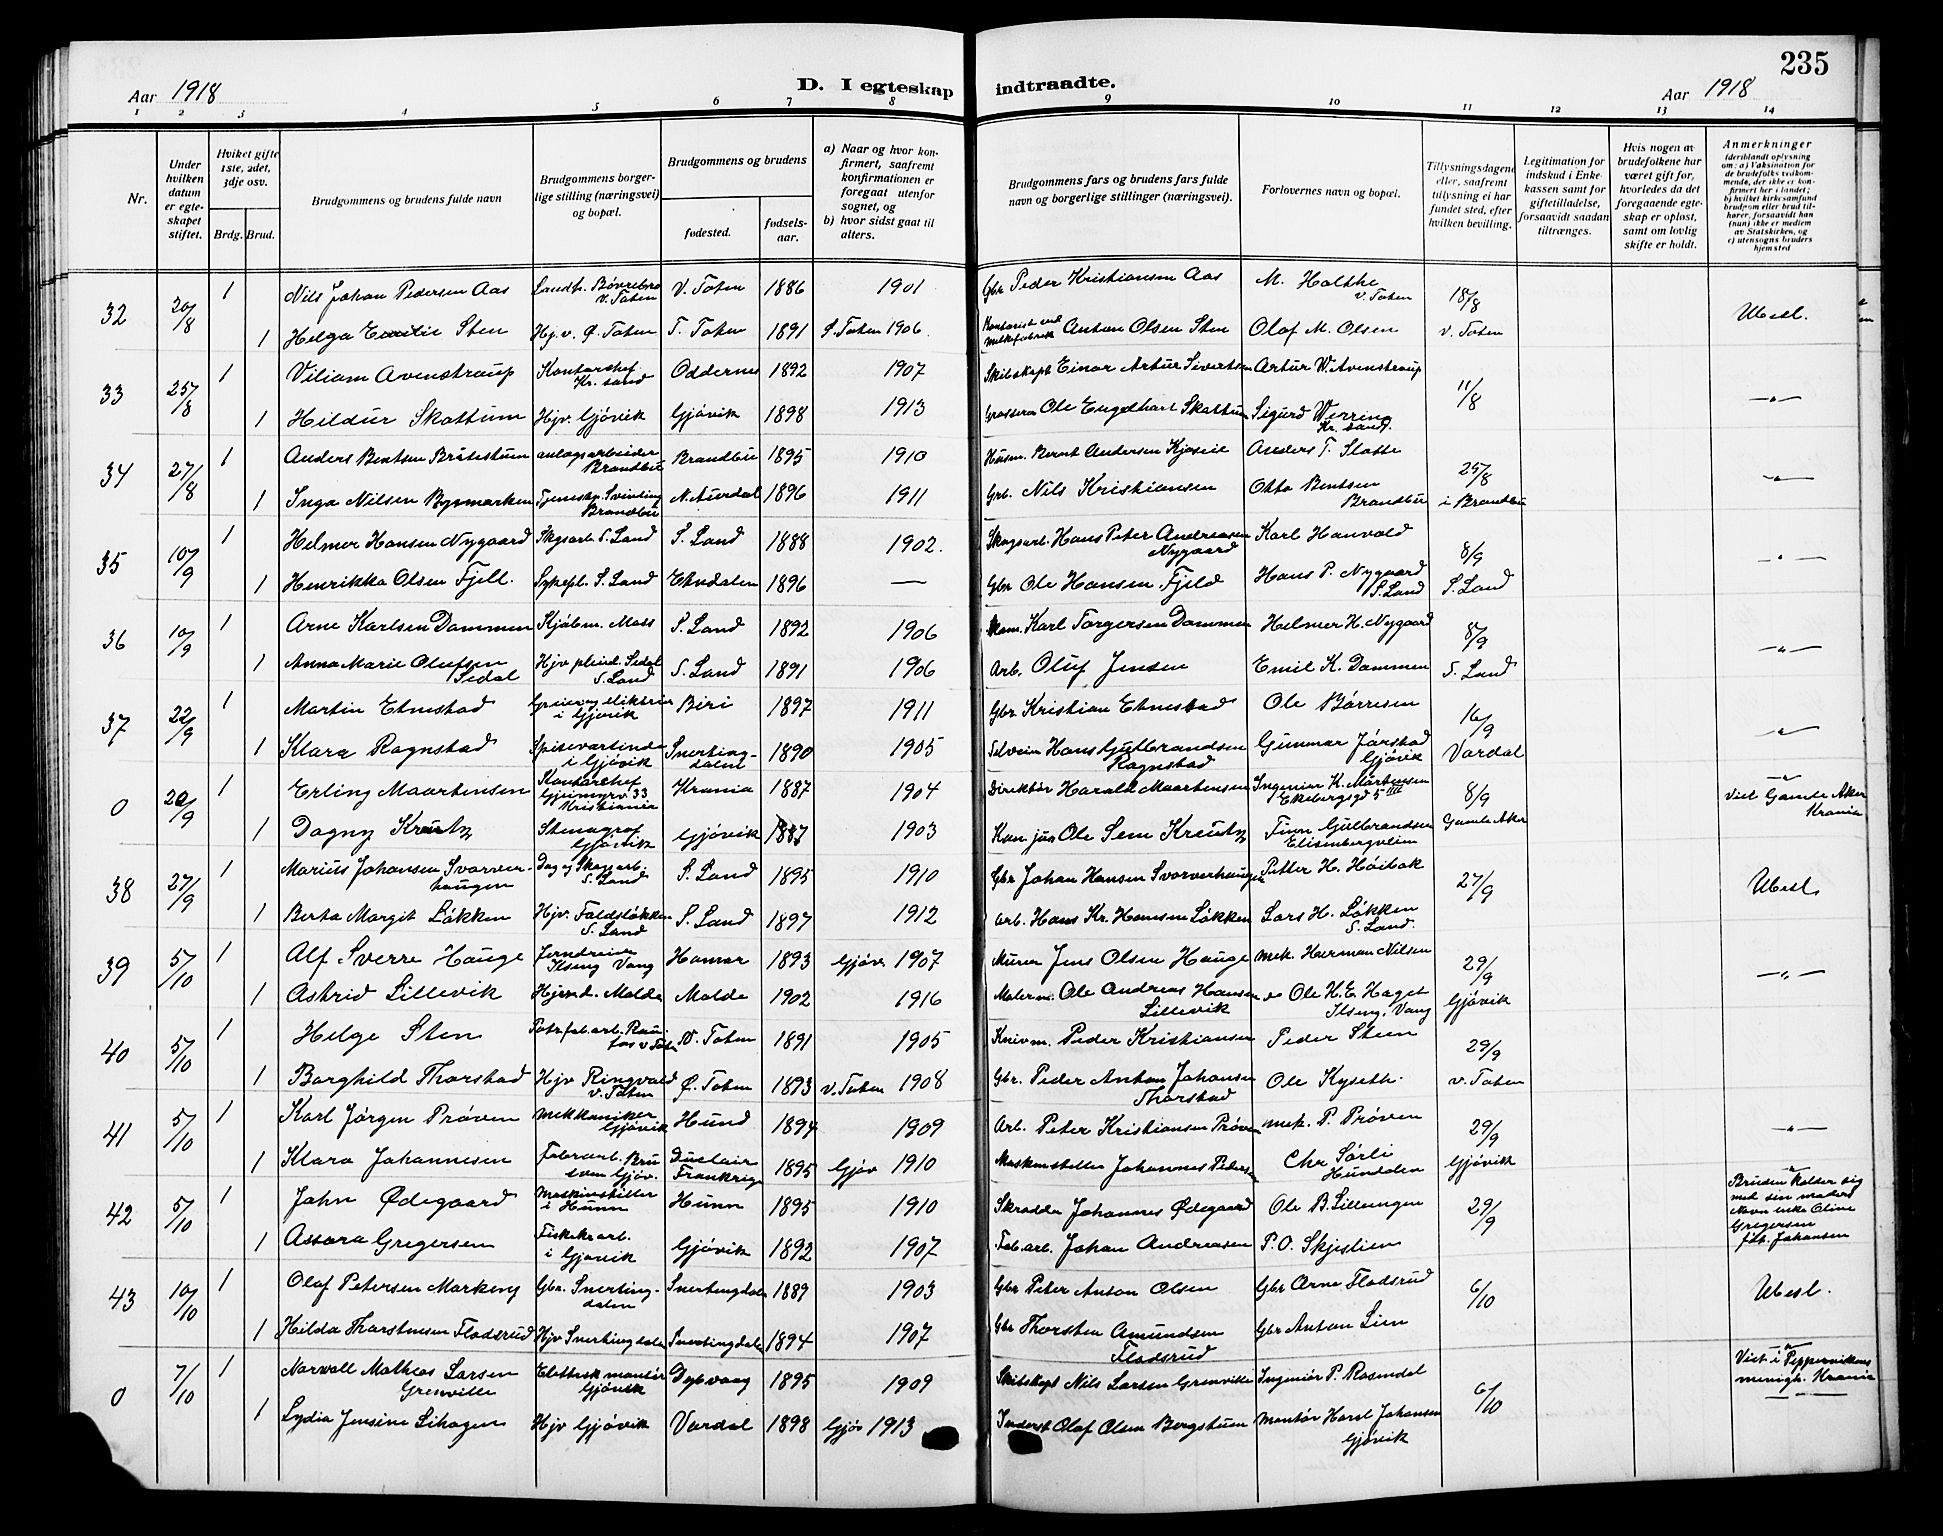 235
Aar 1918
D. I egteskap indtraadte.
Aar 1918
1 2 3 4 5 6 7 8 9 10 11 12 13 14
Nr.
Under hvilken datum er egteskapet stiftet.
Hvilket gifte 1ste, 2det, 3dje osv.
Brdg. Brud.
Brudgommens og brudens fulde navn
Brudgommens borgerlige stilling (næringsvei) og bopæl.
Brudgommens og brudens
fødested.
fødselsaar.
a) Naar og hvor konfirmert, saafremt konfirmationen er foregaat utenfor sognet, og
b) hvor sidst gaat til alters.
Brudgommens fars og brudens fars fulde navn og borgerlige stillinger (næringsvei).
Forlovernes navn og bopæl.
Tillysningsdagene eller, saafremt tillysning ei har fundet sted, efter hvilken bevilling.
Legitimation for indskud i Enkekassen samt for giftetilladelse, forsaavidt saadan tiltrænges.
Hvis nogen av brudefolkene har været gift før, hvorledes da det foregaaende egteskap er opløst, samt om lovlig skifte er holdt.
Anmerkninger
(deriblandt oplysning om: a) Vaksination for de brudefolks vedkommende, der ikke er konfirmert her i landet; b) hvilket kirkesamfund brudgom eller brud tilhører, forsaavidt han (hun) ikke er medlem av Statskirken, og c) utensogns bruders hjemsted
32 20/8 1 Nils Johan Pedersen Aas Landb. Børrebro V. Toten V. Toten 1886 1901 Gbr Peder Kristiansen Aas M. Holthe V. Toten 18/8 Ubesl.
1 Helga Emilie Sten Hj. v. Ø. Toten T. Toten 1891 S. Toten 1906 Kontorist ved melkefabrik Anton Olsen Sten Olaf M. Olsen V. Toten
33 25/8 1 Viliam Avenstroup Kontorchef Kr. sand Oddernes 1892 1907 Skibskapt Einar Artur Sivertsen Artur W. Avenstroup 11/8 —"—
1 Hildur Skattum Hjv. Gjøvik Gjøvik 1898 1913 Grosserer Ole Engelhart Skattum Sigurd Werring Kr. sand.
34 27/8 1 Anders Bentsen Bråtestuen anlægsarbeider Brandbu Brandbu 1895 1910 Husm. Bernt Andersen Anders T. Slatte 25/8 —"—
1 Inga Nilsen Bymarken Tjenestp. Svinting Brandbu N. Aurdal 1896 1911 Grb. Nils Kristiansen Otto Bentsen Brandbu i Brandbu
35 10/9 1 Helmer Hansen Nygaard Skgsarb. S. Land S. Land 1888 1902. Skogsarb. Hans Peter Andreasen Nygaard Karl Hauvald 8/9 —"—
1 Henrikka Olsen Fjell. Sykepl. S. Land Etnedalen 1896 — Gbr Ole Hansen Fjeld Hans P. Nygaard S. Land S. Land
36 10/9 1 Arne Karlsen Dammen Kjøbm. Moss S. Land 1892 1906 Karl Torgersen Dammen Helmer H. Nygaard 8/9 —"—
1 Anna Marie Olufsen Sedal Hjv Sedal S. Land S. Land 1891 1906 Arb. Oluf Jensen Emil K. Dammen S. Land
37 22/9 1 Martin Etnestad i Gjøvik Biri 1897 1911 Gbr Kristian Etnestad Ole Børresen 16/9 —"—
1 Klara Rognstad Spisevertinde i Gjøvik Snertingdalen 1890 1905 Selveier Hans Gulbrandsen Rognstad Gunnar Jørstad Gjøvik Vardal
0 22/9 1 Erling Maartensen Kontorchef 33 Kristiania Krania 1887 1904 Direktør Harald Maartensen Ingeniør K. Mårtensen Ekebergsgd 5 III 8/9 —"— Viet Gamle Aker Krania
1 Dagny Kreutz Stenograf Gjøvik Gjøvik 1887 1903 Ole Sem Kreutz Finn Gulbrandsen Elisenbergveien Gamle Aker
38 27/9 1 Marius Johansen Svarverhaugen Dag og Skogsarb. S. Land S. Land 1895 1910 Gbr Johan Hansen Svarverhaugen Petter H. Høibak 27/9 Ubesl
1 Berta Margit Løkken Hjv. Faldsløkken S. Land S. Land 1897 1912 Arb. Hans Kr. Hansen Løkken Lars H. Løkken S. Land.
39 5/10 1 Alf Sverre Hauge Jerndreier Ilseng Vang Hamar 1893 Gjøv 1907 Murer Jens Olsen Hauge Mek. Herman Nilsen 29/9 —"—
1 Astrid Lillevik Molde Molde 1902 1916 Malerm. Ole Andreas Hansen Lillevik Ole H. E. Haget Ilseng, Vang Gjøvik
40 5/10 1 Helge Sten Patrfab.arb. Raufos v Toten V. Toten 1891 1905 Peder Kristiansen Peder Steen 29/9
1 Borghild Thorstad Hjv Ringvold V. Toten Ø. Toten 1893 V. Toten 1908 Gbr. Peder Anton Johansen Thorstad Ole Kyseth. V. Toten
41 5/10 1 Karl Jørgen Prøven Mekkaniker Gjøvik Hund 1894 1909 Arb. Peter Kristiansen Prøven Mek. P. Prøven 29/9 —"—
1 Klara Johannesen Fabrarb. Bru Gjøv. Duclair Frankrige 1895 Gjøv 1910 Maskinstiller Johannes Pedersen Chr Sørli Hunddalen Gjøvik
42 5/10 1 John Ødegaard Maskinstiller i Hunn Hunn 1895 1910 Skrædder Johannes Ødegaard Ole B. Lillengen 29/9 —"— Bruden kalder sig med sin moders navn enke Oline Gregersen føt. Johansen
1 Assora Gregersen Fiskekrarb. i Gjøvik Gjøvik 1892 1907 Fab.arb. Johan Andreasen P. O. Skjeslien
43 10/10 1 Olaf Petersen Markeng Gbr. Snertingdalen Snertingdalen 1889 1903 Gbr Peter Anton Olsen Gbr Arne Flodsrud 6/10 Ubesl.
1 Hilda Thorstensen Flodsrud Hjv Snertingdalen Snertingdalen 1894 1907 Gbr Thorsten Amundsen Flodsrud Gbr Anton Lien
0 7/10 1 Narvall Mathias Larsen Grenville Elektrisk montør Gjøvik Dybvaag 1895 1909 Skibskapt Nils Larsen Grenville Ingeniør P. Rosendal 6/10 —"— Viet i Peppervikens menigh. Krania
1 Lydia Jensine Lihagen Hjv Gjøvik Vardal 1898 Gjøv 1913 Olaf Olsen Bergstuen Montør Harel Johansen Gjøvik